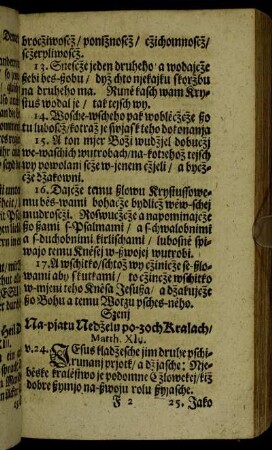 broczíwoscż/ ponížnoscż/ cżichomnoscż/
scżerpliwoscż.
13. Snescże jeden druhego/ a wodajcże
ßebi bes-ßobu/ dyż chto njekajku skoržbu
na druhego ma. Runé kasch wam Kry-
stus wodal je/ tak tejsch wy.
14. Wosche-wschego pak woblécżcże ßo
tu luboscż/ kotraž je swjask teho dokonanja
15. A ton mjer Boži wudżel dobucżj
we-waschich wutrobach/ na-kotrehož tejsch
wy powolani scże w-jenem cżjeli/ a byčże
cże džakowni.
16. Dajcże temu ßlowu Krystussowe-
mu bes-wami bohacże bydlicż wéw-schej
mudroscżi. Roswucżcże a napominajcże
ßo ßami s-Psalmami/ a s-chwalobnimi
a s-duchobnimi kirlischami/ lubosné spi-
wajo temu Knésej w-ßwojej wutrobi.
17. A wschitko/ schtož wy cżinicże se-ßlo-
wami aby skutkami/ to cżincże wschitko
w-mjeni teho Knésa Jesußa/ a džakujcże
ßo Bohu a temu Wotzu psches-ného.
Szenj
Na-pjatu Nedżelu po-3och Kralach/
Matth. XIII.
v. 24. JEsus kladżesche jim druhe pschi-
runanj prjotk/ a džjasche: Nje-
béske kralestwo je podomne Cżlowekej/ kiž
dobre ßymjo na-ßwoju rolu ßyjasche.
F 2
25. Jako